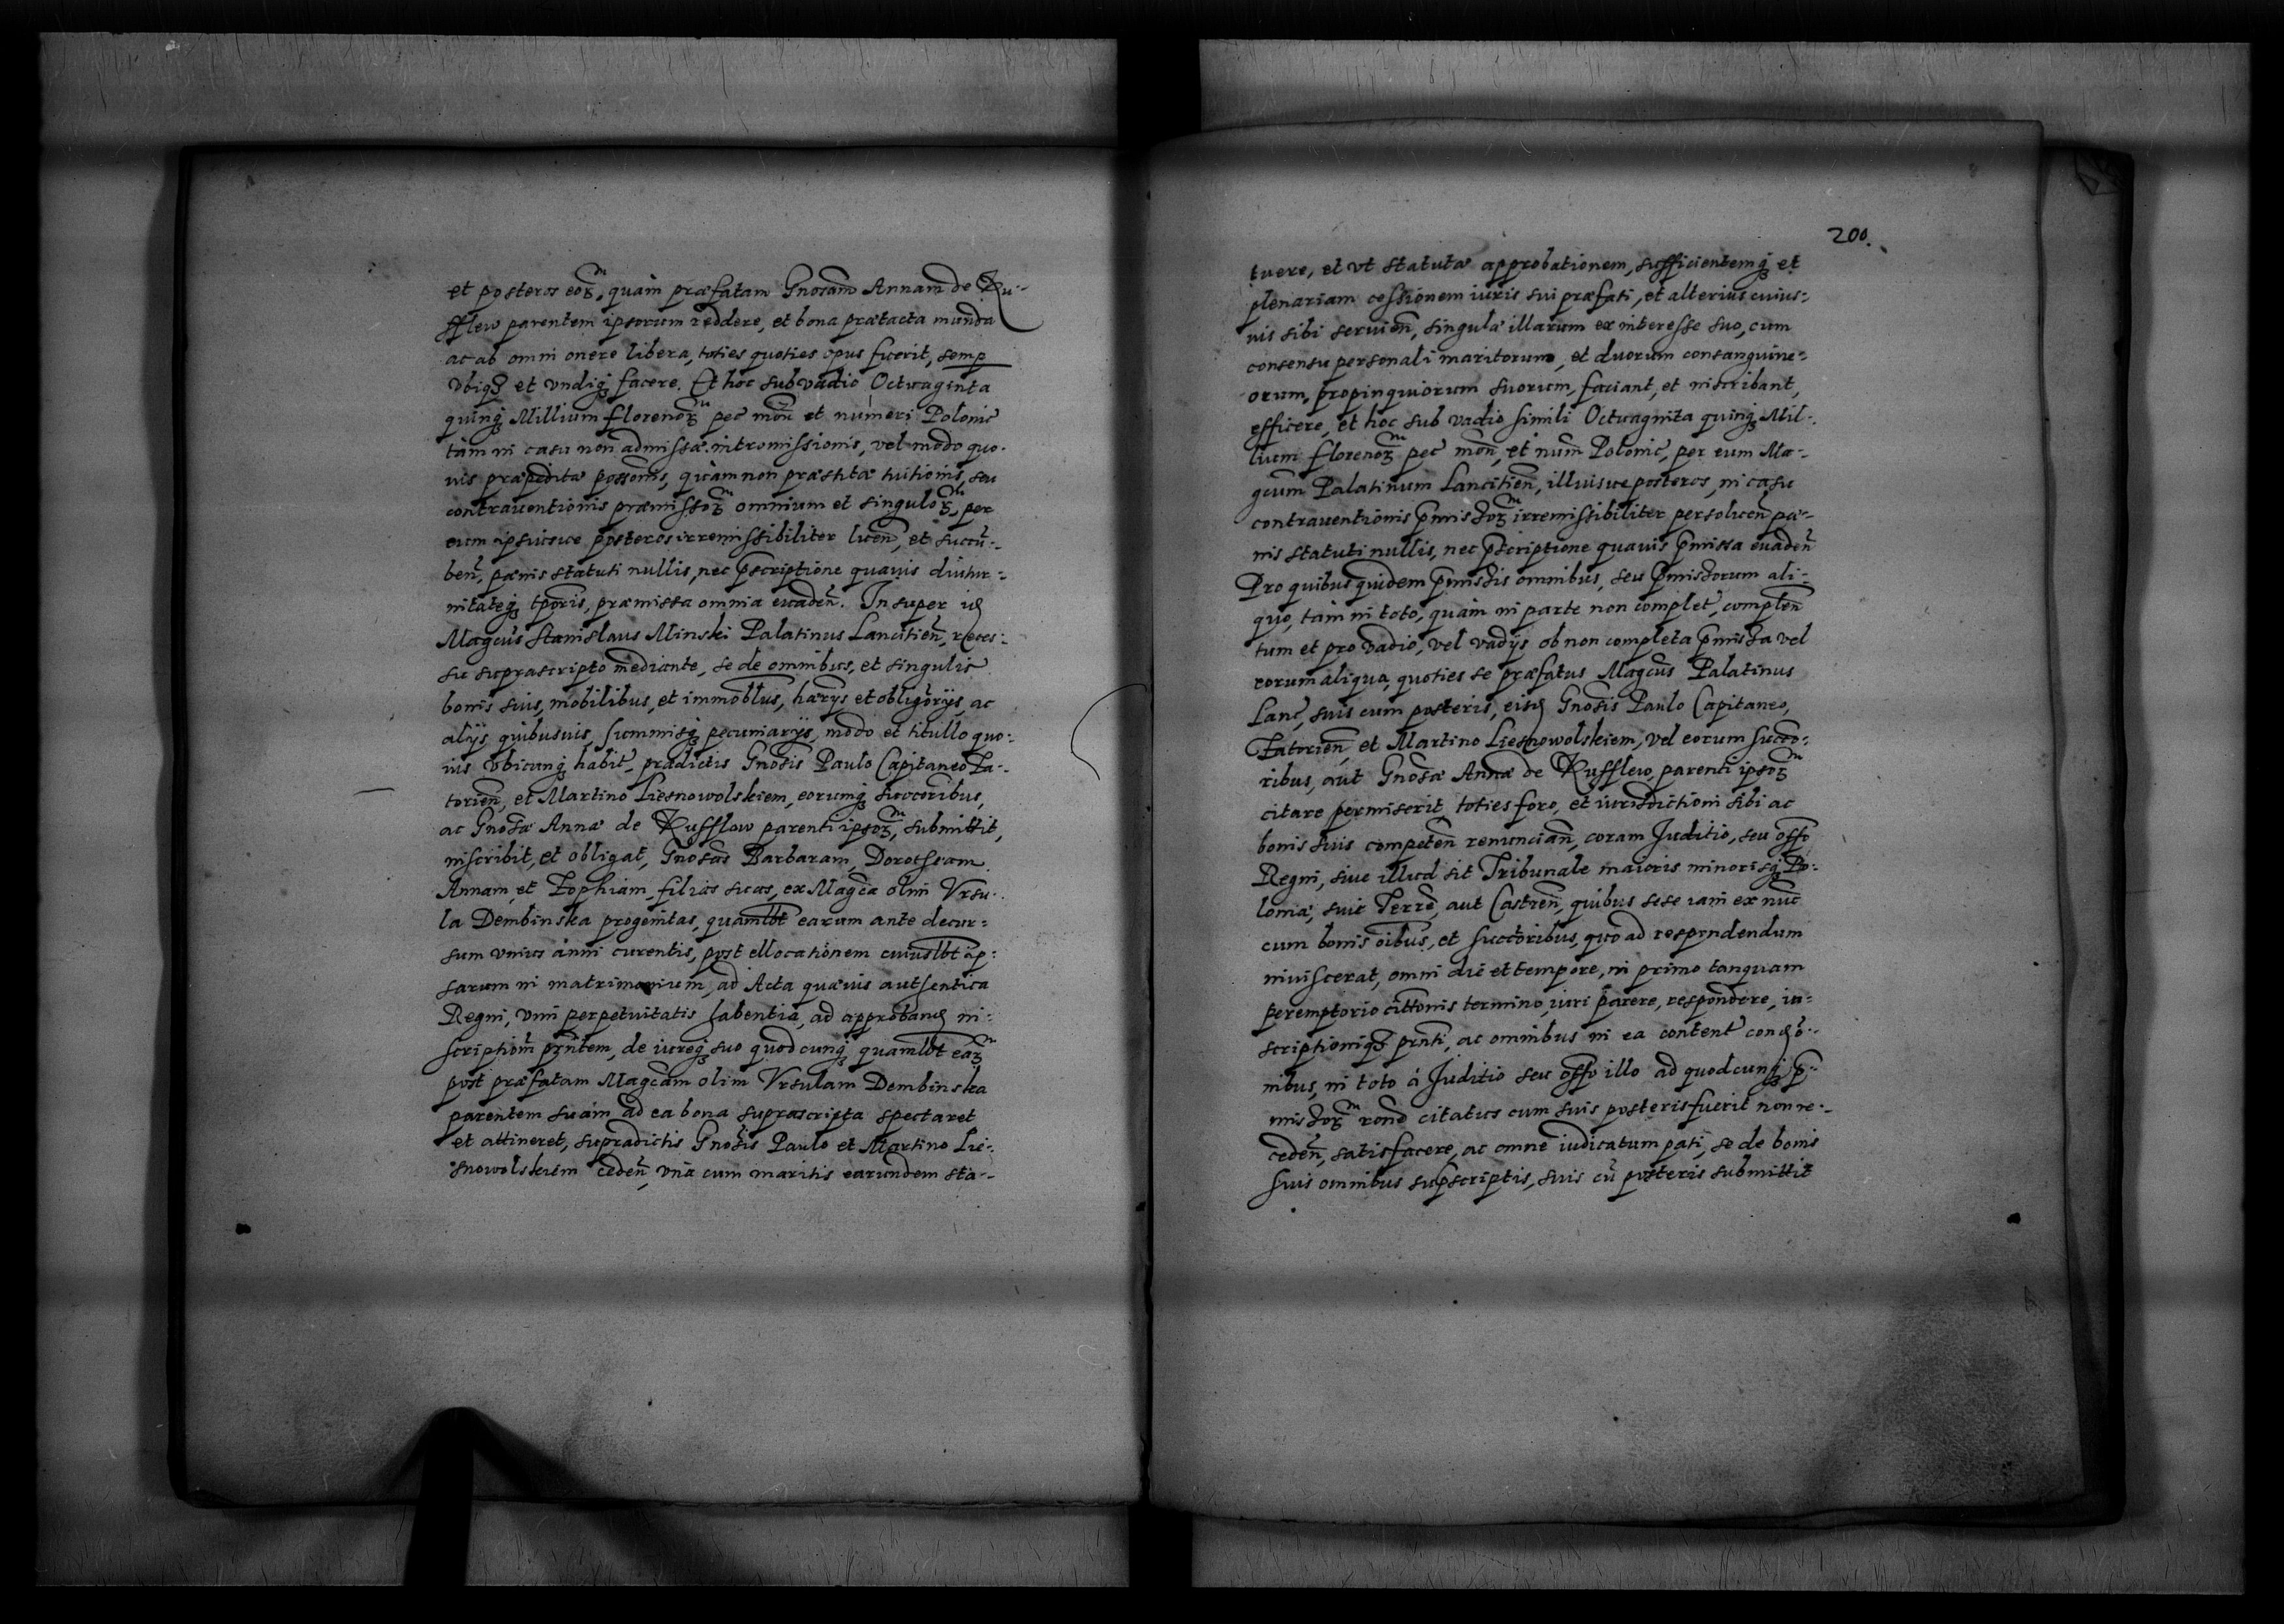 et posteros eoꝝᵐ, quàm præfatam Gnosam̃ Annam de Ru-
fflew parentem ipsorum reddere, et bona prætacta munda
ac ab omni onere libera, toties quoties opus fuerit, semp
vbiqꝫ et vndiqꝫ facere. Et hoc sub vadio Octuaginta
quinqꝫ Millium florenoꝝᵐ pec̃ moñ et numeri Polonic̃
tàm in casu non admissæ intromissionis, vel modo quo-
vis præpeditæ possonis̃, quàm non præstitæ tuitionis, seu
contrauentionis præmissoꝝᵐ omnium et singuloꝝᵐ, per
eum ipsiusue posteros irremissibiliter lueñ, et succũ-
beñ, pænis statuti nullis, nec p̃scriptione quauis diutur-
nitateqꝫ tp̃oris, præmissa omnia euadeñ. In super idẽ
Magcus̃ Stanislaus Minski Palatinus Lancitieñ, reces-
su suprascripto mediante, se de omnibus, et singulis
bonis suis, mobilibus, et immoblbus̃, hærijs et obligorijs̃, ac
alijs quibusuis, summisqꝫ pecuniarijs, modo et titullo quo-
uis vbicunqꝫ habit̃, prædictis Gnosis̃ Paulo Capitaneo Za-
torieñ, et Martino Liesnowolskiem, eorumqꝫ succoribus̃,
ac Gnosæ̃ Annæ de Rufflow parenti ipsoꝝᵐ, submittit,
inscribit, et obligat, Gnosas̃ Barbaram, Dorotheam
Annam, et Zophiam, filias suas, ex Magca̅ olim Vrsu-
la Dembinska progenitas, quamlbt̃ earum ante decur-
sum vnius anni curentis, post ellocationem cuiuslbt̃ ip-
sarum in matrimonium, ad Acta quæuis authentica
Regni, vim perpetuitatis habentia, ad approband̃ in-
scriptiom̃ prntem̃, de iureqꝫ suo quodcunqꝫ quamlbt̃ eaꝝᵐ
post præfatam Magcam̃ olim Vrsulam Dembinska
parentem suam ad ea bona suprascripta spectaret
et attineret, supradictis Gnosis̃ Paulo et Martino Lie-
snowolskiem cedeñ, vnà cum maritis earundem sta-
200.
tuere, et vt statutæ approbationem, sufficientemqꝫ et
plenariam cessionem iuris sui præfati, et alterius cuius-
uis sibi seruieñ, singulæ illarum ex interesse suo, cum
consensu personali maritorum, et duorum consanguine-
orum, propinquiorum suorum, faciant, et inscribant,
efficere, et hoc sub vadio simili Octuaginta quinqꝫ Mil-
lium florenoꝝᵐ pec̃ moñ, et num̃ Polonic̃, per eum Ma-
gcum̃ Palatinum Lancitieñ, illiusue posteros, in casu
contrauentionis p̃missoꝝᵐ irremissibiliter persolueñ pæ-
nis statuti nullis, nec p̃scriptione quauis p̃missa euadeñ
Pro quibus quidem p̃missis omnibus, seu p̃missorum ali-
quo, tàm in toto, quàm in parte non complet̃, compleñ
tum et pro vadio, vel vadijs ob non completa p̃missa vel
eorum aliqua, quoties se præfatus Magcus̃ Palatinus
Lanc̃, suis cum posteris, eisd̃ Gnosis̃ Paulo Capitaneo,
Zatorieñ, et Martino Liesnowolskiem, vel eorum succo-
ribus, aut Gnosæ̃ Annæ de Rufflew, parenti ipsoꝝᵐ
citare permiserit, toties foro, et iurisdictioni sibi ac
bonis suis competeñ renunciañ, coram Juditio, seu offo̅
Regni, siue illud sit Tribunale maioris minorisqꝫ Po-
loniæ, siue Terre̅, aut Castreñ, quibus sese iam ex nunc̃
cum bonis oibus̃, et succoribus̃, quo ad respondendum
inuiscerat, omni die et tempore, in primo tanquam
peremptorio cittonis̃ termino, iuri parere, respondere, in-
scriptioniqꝫ prnti̅, ac omnibus in ea content̃ condo-
nibus, in toto à Juditio seu offo̅ illo ad quodcunqꝫ p̃-
missoꝝᵐ rone̅ citatus cum suis posteris fuerit non re-
cedeñ, satisfacere, ac omne iudicatum pati, se de bonis
suis omnibus supscriptis̃, suis cũ posteris submittit